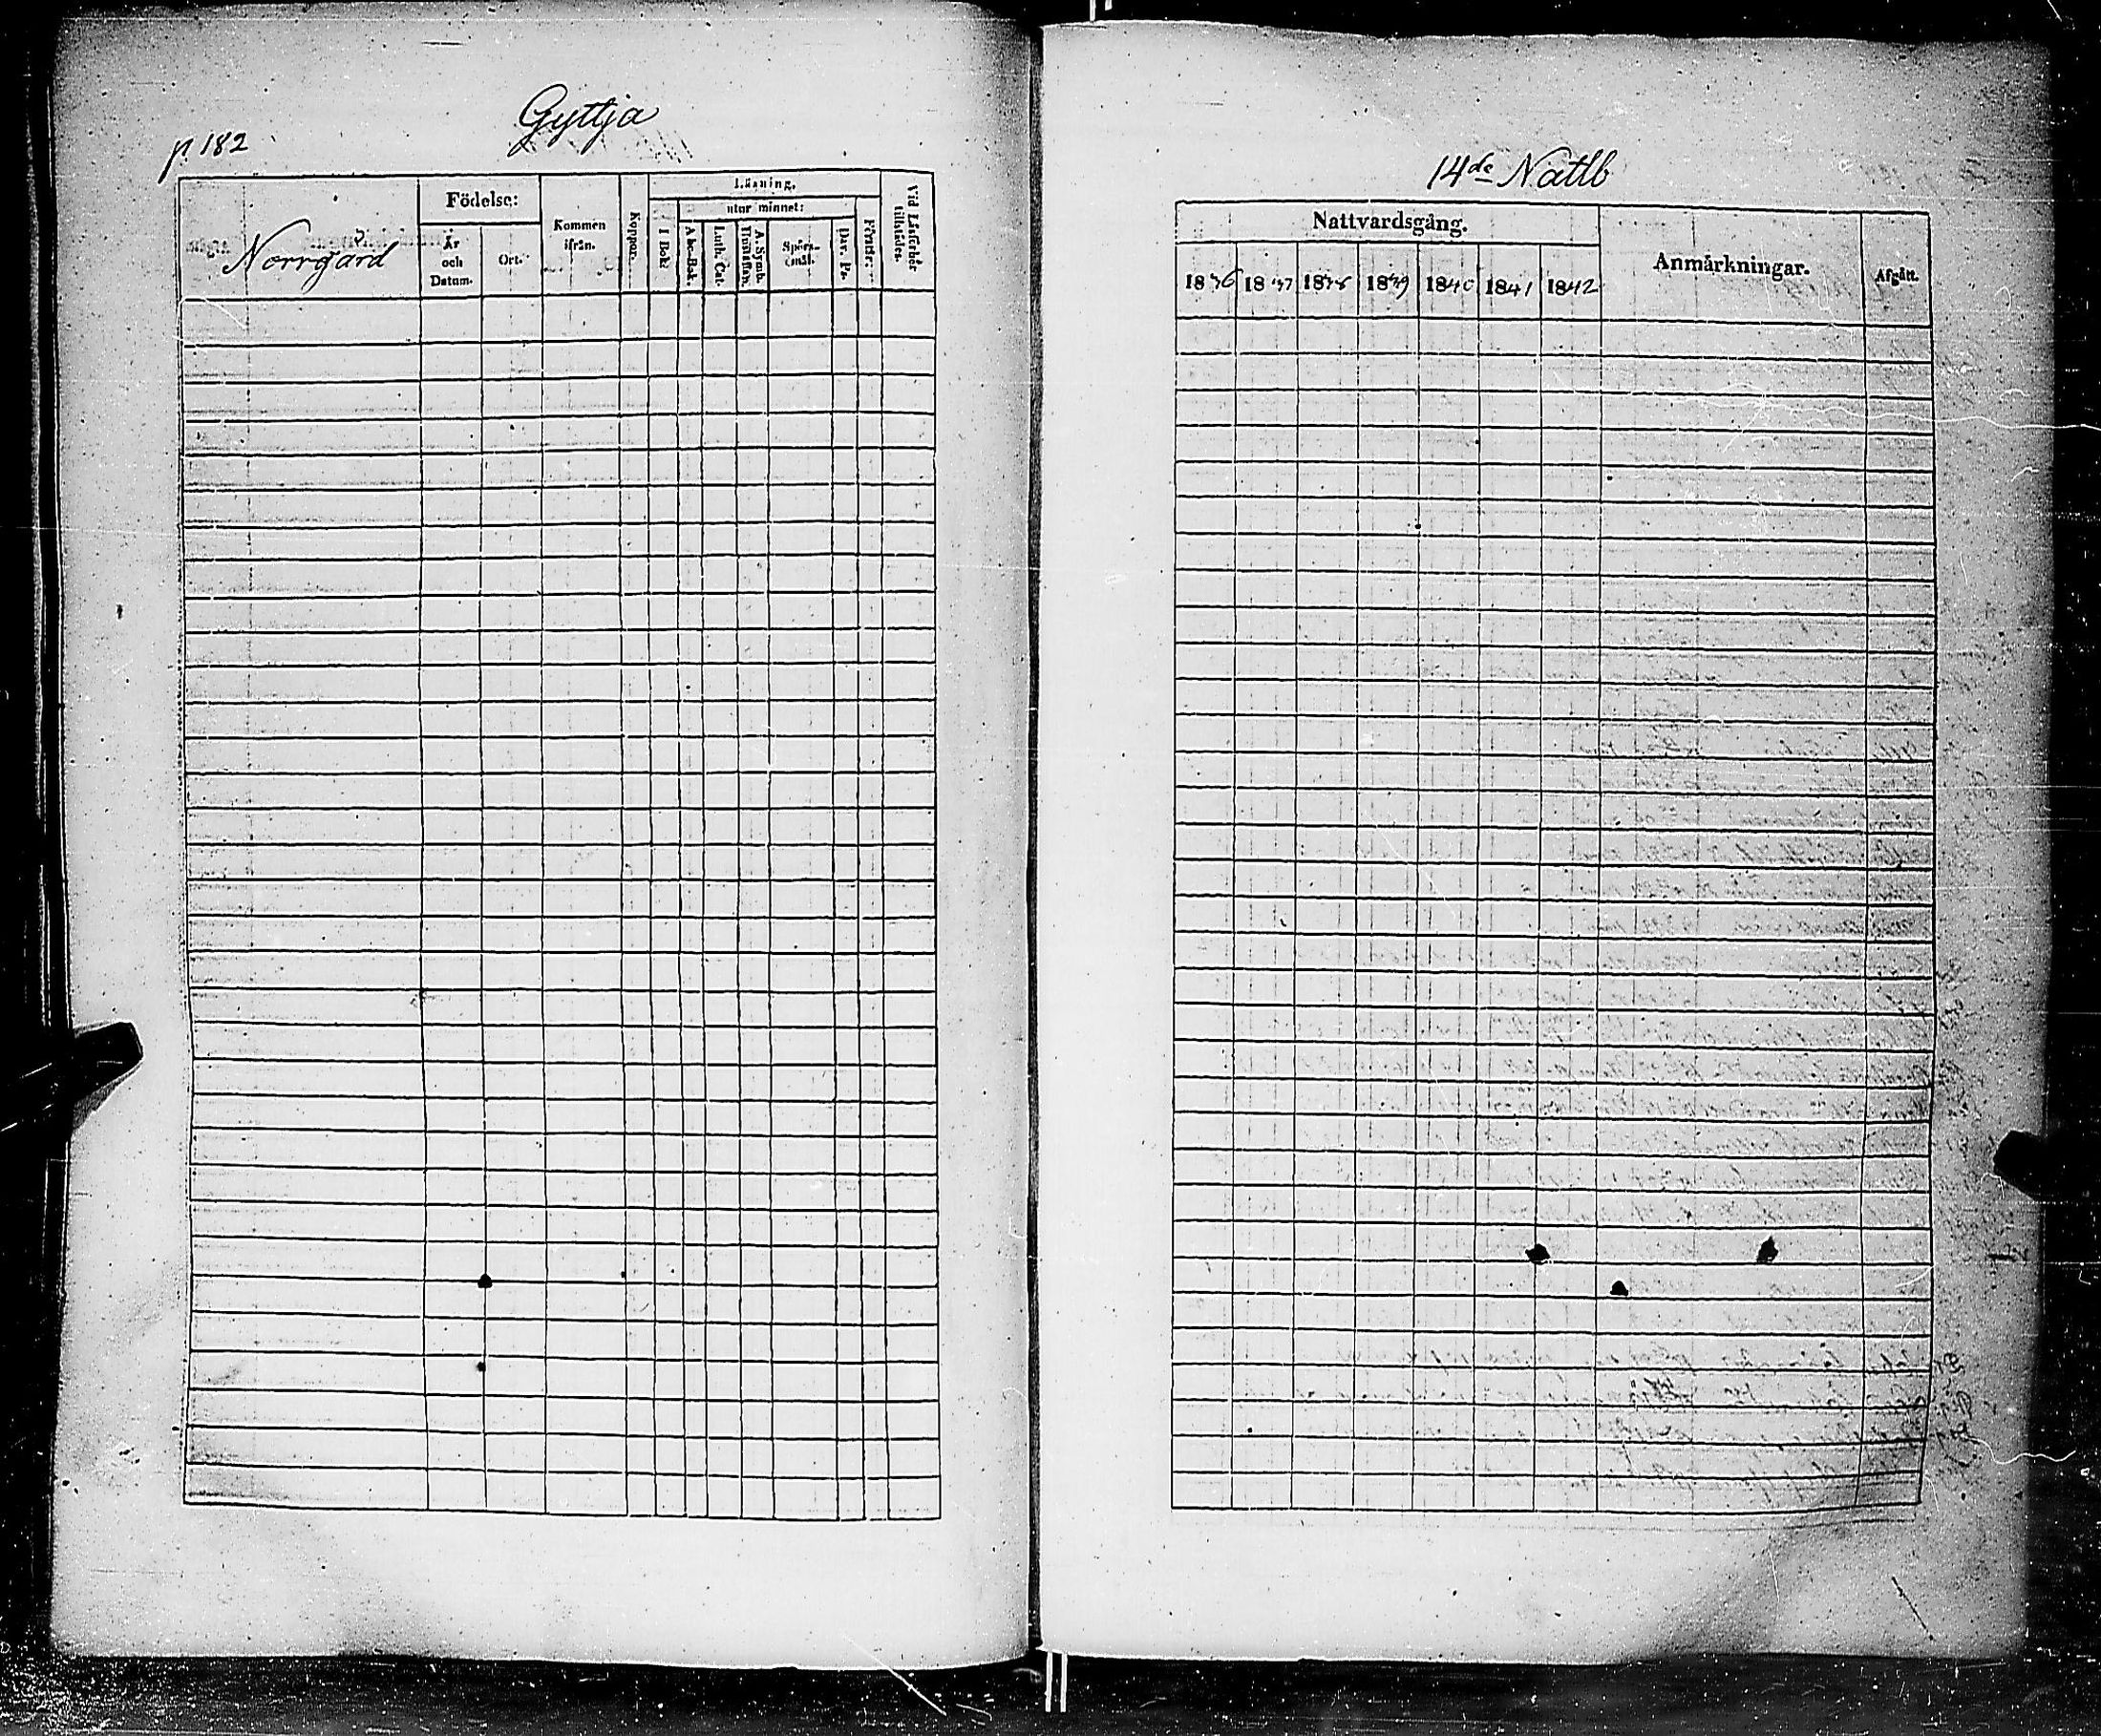 Gyttja
p 182
Norrgård
Födelse:
År och Datum.
Ort.
Kommen ifrån.
Koppor.
Läsning.
utur minnet:
I Bok.
Abc-Bok.
Luth. Cat.
A. Symb. Hustaflan.
Spörs-smål.
Dav. Ps.
Förstår.
Vid Läsförhör tillstädes.
14de Nattb
Nattvardsgång.
Anmärkningar.
Afgått.
1836 1837 1838 1839 1840 1841 1842